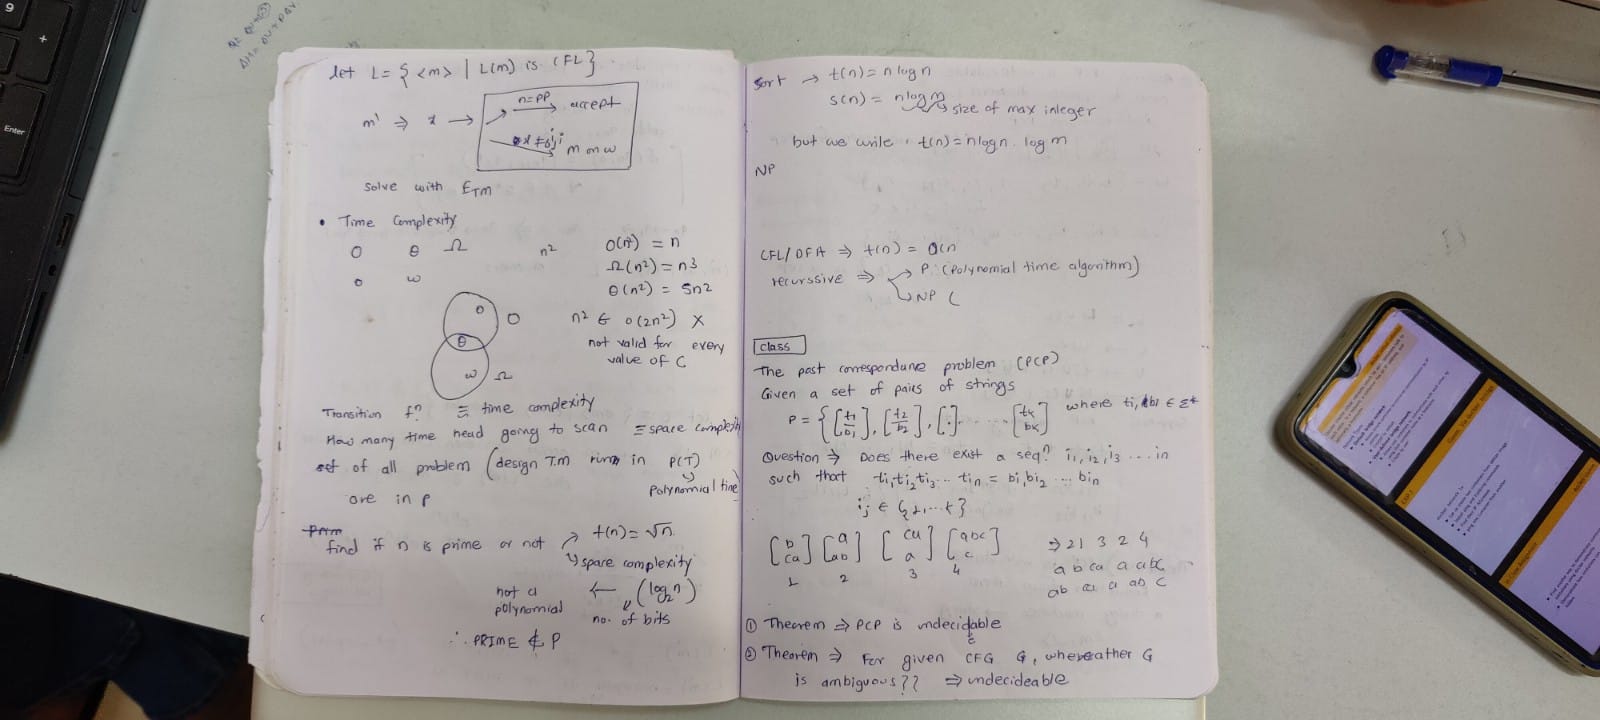 let L = { <m> | L(m) is CFL }
m' ⇒ x →
n=pp → accept
x ≠ → m on w
solve with ETM
• Time Complexity
O θ Ω
o ω
n² O(n²) = n
Ω(n²) = n3
θ(n²) = 5n2
n² ∈ o(2n²) X
not valid for every
value of C
o O
θ
ω Ω
Transition fⁿ ≡ time complexity
How many time head going to scan ≡ space complexity
set of all problem (design T.m runs in P(T)
polynomial time)
are in p
find if n is prime or not → t(n) = √n
↳ space complexity
not a polynomial ← (log₂n)
no. of bits
∴ PRIME ∉ P
Sort → t(n) = n log n
s(n) = n log m → size of max integer
but we write, t(n) = n log n. log m
NP
CFL/DFA ⇒ t(n) = O(n
recurssive ⇒ → P: (polynomial time algorithm)
↳ NP (
class
The post correspondune problem (PCP)
Given a set of pairs of strings
P = { [t1/b1], [t2/b2], [.] ..... [tk/bk] where ti, bi ∈ Σ*
Question ⇒ Does there exist a seqn i1, i2, i3 ... in
such that ti1 ti2 ti3 ... tin = bi1 bi2 ... bin
ij ∈ {1, ... k}
[b/ca] [a/ab] [ca/a] [abc/c] ⇒ 2 1 3 2 4
1 2 3 4
a b ca a abc
ab ca a ab c
① Theorem ⇒ PCP is undecidable
② Theorem ⇒ For given CFG G, wheather G
is ambiguous?? ⇒ undecideable
9
+
Enter